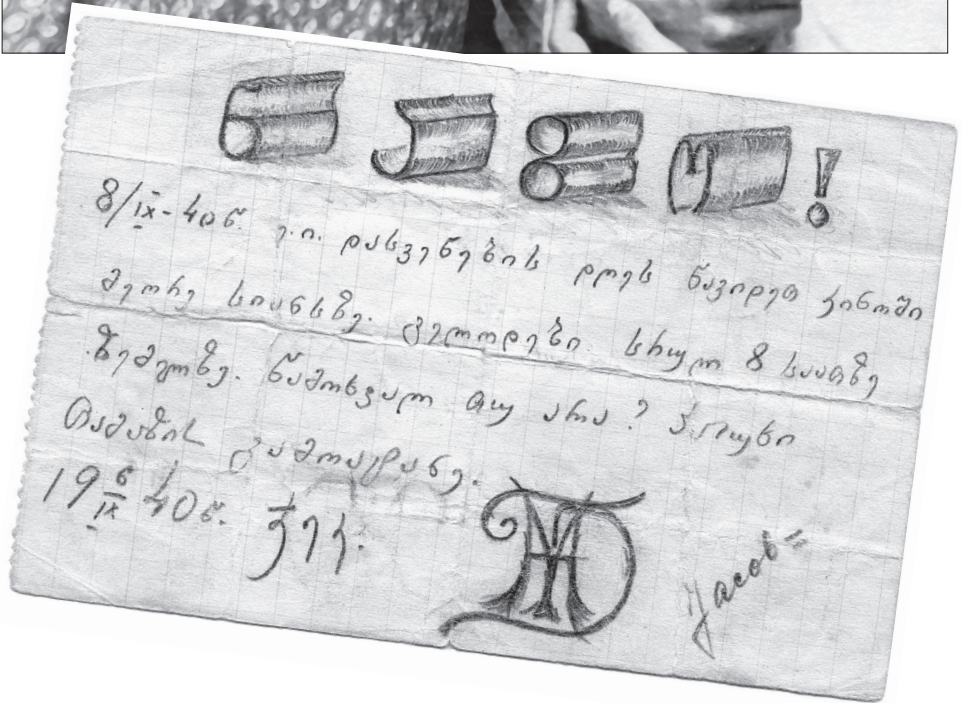 !
8/IX-40წ. ე.ი. დასვენების დღეს წავიდეთ კინოში
მეორე სიანსზე. გელოდები სრულ 8 საათზე
ზემელზე. წამოხვალ თუ არა? პასუხი
თამაზის გამოატანე.
19 6/IX 40წ.
Jacob=